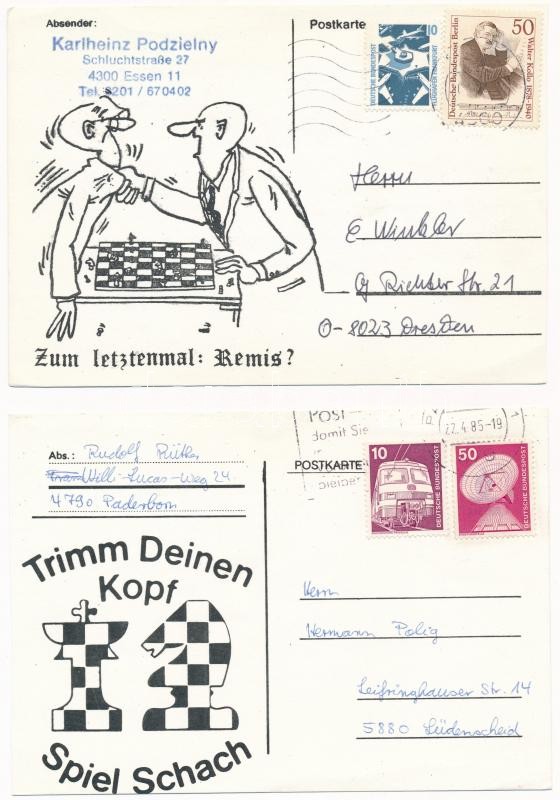 Absender:
Karlheinz Podzielny
Schluchtstraße 27
4300 Essen 11
Tel. 0201 / 670402
Postkarte
10
DEUTSCHE BUNDESPOST
FLUGHAFEN FRANKFURT
50
Deutsche Bundespost Berlin
Walter Kollo 1878-1940
Herrn
E Winkler
Richter Str. 21
O-8023 Dresden
Zum letztenmal: Remis?
Abs.: Rudolf
Willi-Lucas-Weg 24
4790 Paderborn
POSTKARTE
Post
damit Sie
22.4.85-19
10
DEUTSCHE BUNDESPOST
50
DEUTSCHE BUNDESPOST
Trimm Deinen
Kopf
Spiel Schach
Herrn
Hermann Polig
Leifringhauser Str. 14
5880 Lüdenscheid